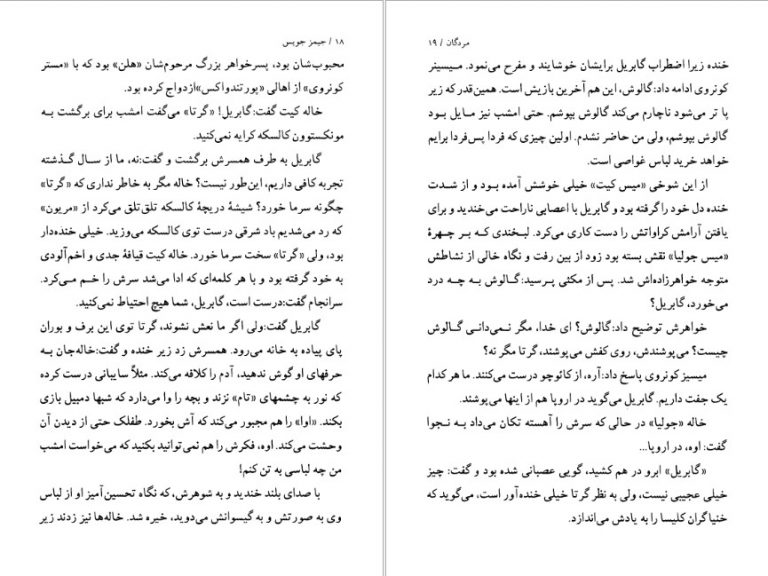 ۱۸ / جیمز جویس
محبوب‌شان بود، پسرخواهر بزرگ مرحوم‌شان «هلن» بود که با «مستر
کونروی» از اهالی «پورتندواکس»ازدواج کرده بود.
خاله کیت گفت:گابریل! «گرتا» می‌گفت امشب برای برگشت به
مونکستوون کالسکه کرایه نمی‌کنید.
گابریل به طرف همسرش برگشت و گفت:نه، ما از سال گذشته
تجربه کافی داریم، این‌طور نیست؟ خاله مگر به خاطر نداری که «گرتا»
چگونه سرما خورد؟ شیشهٔ دریچهٔ کالسکه تلق‌تلق می‌کرد از «مریون»
که رد می‌شدیم باد شرقی درست توی کالسکه می‌وزید. خیلی خنده‌دار
بود، ولی «گرتا» سخت سرما خورد. خاله کیت قیافهٔ جدی و اخم‌آلودی
به خود گرفته بود و با هر کلمه‌ای که ادا می‌شد سرش را خم می‌کرد.
سرانجام گفت:درست است، گابریل، شما هیچ احتیاط نمی‌کنید.
گابریل گفت:ولی اگر ما نعش نشوند، گرتا توی این برف و بوران
پای پیاده به خانه می‌رود. همسرش زد زیر خنده و گفت:خاله‌جان به
حرفهای او گوش ندهید، آدم را کلافه می‌کند. مثلاً سایبانی درست کرده
که نور به چشمهای «تام» نزند و بچه را وا می‌دارد که شبها دمبیل بازی
بکند. «اوا» را هم مجبور می‌کند که آش بخورد. طفلک حتی از دیدن آن
وحشت می‌کند. اوه، فکرش را هم نمی‌توانید بکنید که می‌خواست امشب
من چه لباسی به تن کنم!
با صدای بلند خندید و به شوهرش،که نگاه تحسین‌آمیز او از لباس
وی به صورتش و به گیسوانش می‌دوید، خیره شد. خاله‌ها نیز زدند زیر
مردگان / ۱۹
خنده زیرا اضطراب گابریل برایشان خوشایند و مفرح می‌نمود. میسیز
کونروی ادامه داد:گالوش، این هم آخرین بازیش است. همین‌قدر که زیر
پا تر می‌شود ناچارم می‌کند گالوش بپوشم. حتی امشب نیز مایل بود
گالوش بپوشم، ولی من حاضر نشدم. اولین چیزی که فردا پس‌فردا برایم
خواهد خرید لباس غواصی است.
از این شوخی «میس کیت» خیلی خوشش آمده بود و از شدت
خنده دل خود را گرفته بود و گابریل با اعصابی ناراحت می‌خندید و برای
یافتن آرامش کراواتش را دست کاری می‌کرد. لبخندی که بر چهرهٔ
«میس جولیا» نقش بسته بود زود از بین رفت و نگاه خالی از نشاطش
متوجه خواهرزاده‌اش شد. پس از مکثی پرسید:گالوش به چه درد
می‌خورد، گابریل؟
خواهرش توضیح داد:گالوش؟ ای خدا، مگر نمی‌دانی گالوش
چیست؟ می‌پوشندش، روی کفش می‌پوشند، گرتا مگر نه؟
میسیز کونروی پاسخ داد:آره، از کائوچو درست می‌کنند. ما هر کدام
یک جفت داریم. گابریل می‌گوید در اروپا هم از اینها می‌پوشند.
خاله «جولیا» در حالی که سرش را آهسته تکان می‌داد به نجوا
گفت: اوه، در اروپا...
«گابریل» ابرو در هم کشید، گویی عصبانی شده بود و گفت: چیز
خیلی عجیبی نیست، ولی به نظر گرتا خیلی خنده‌آور است، می‌گوید که
خنیاگران کلیسا را به یادش می‌اندازد.